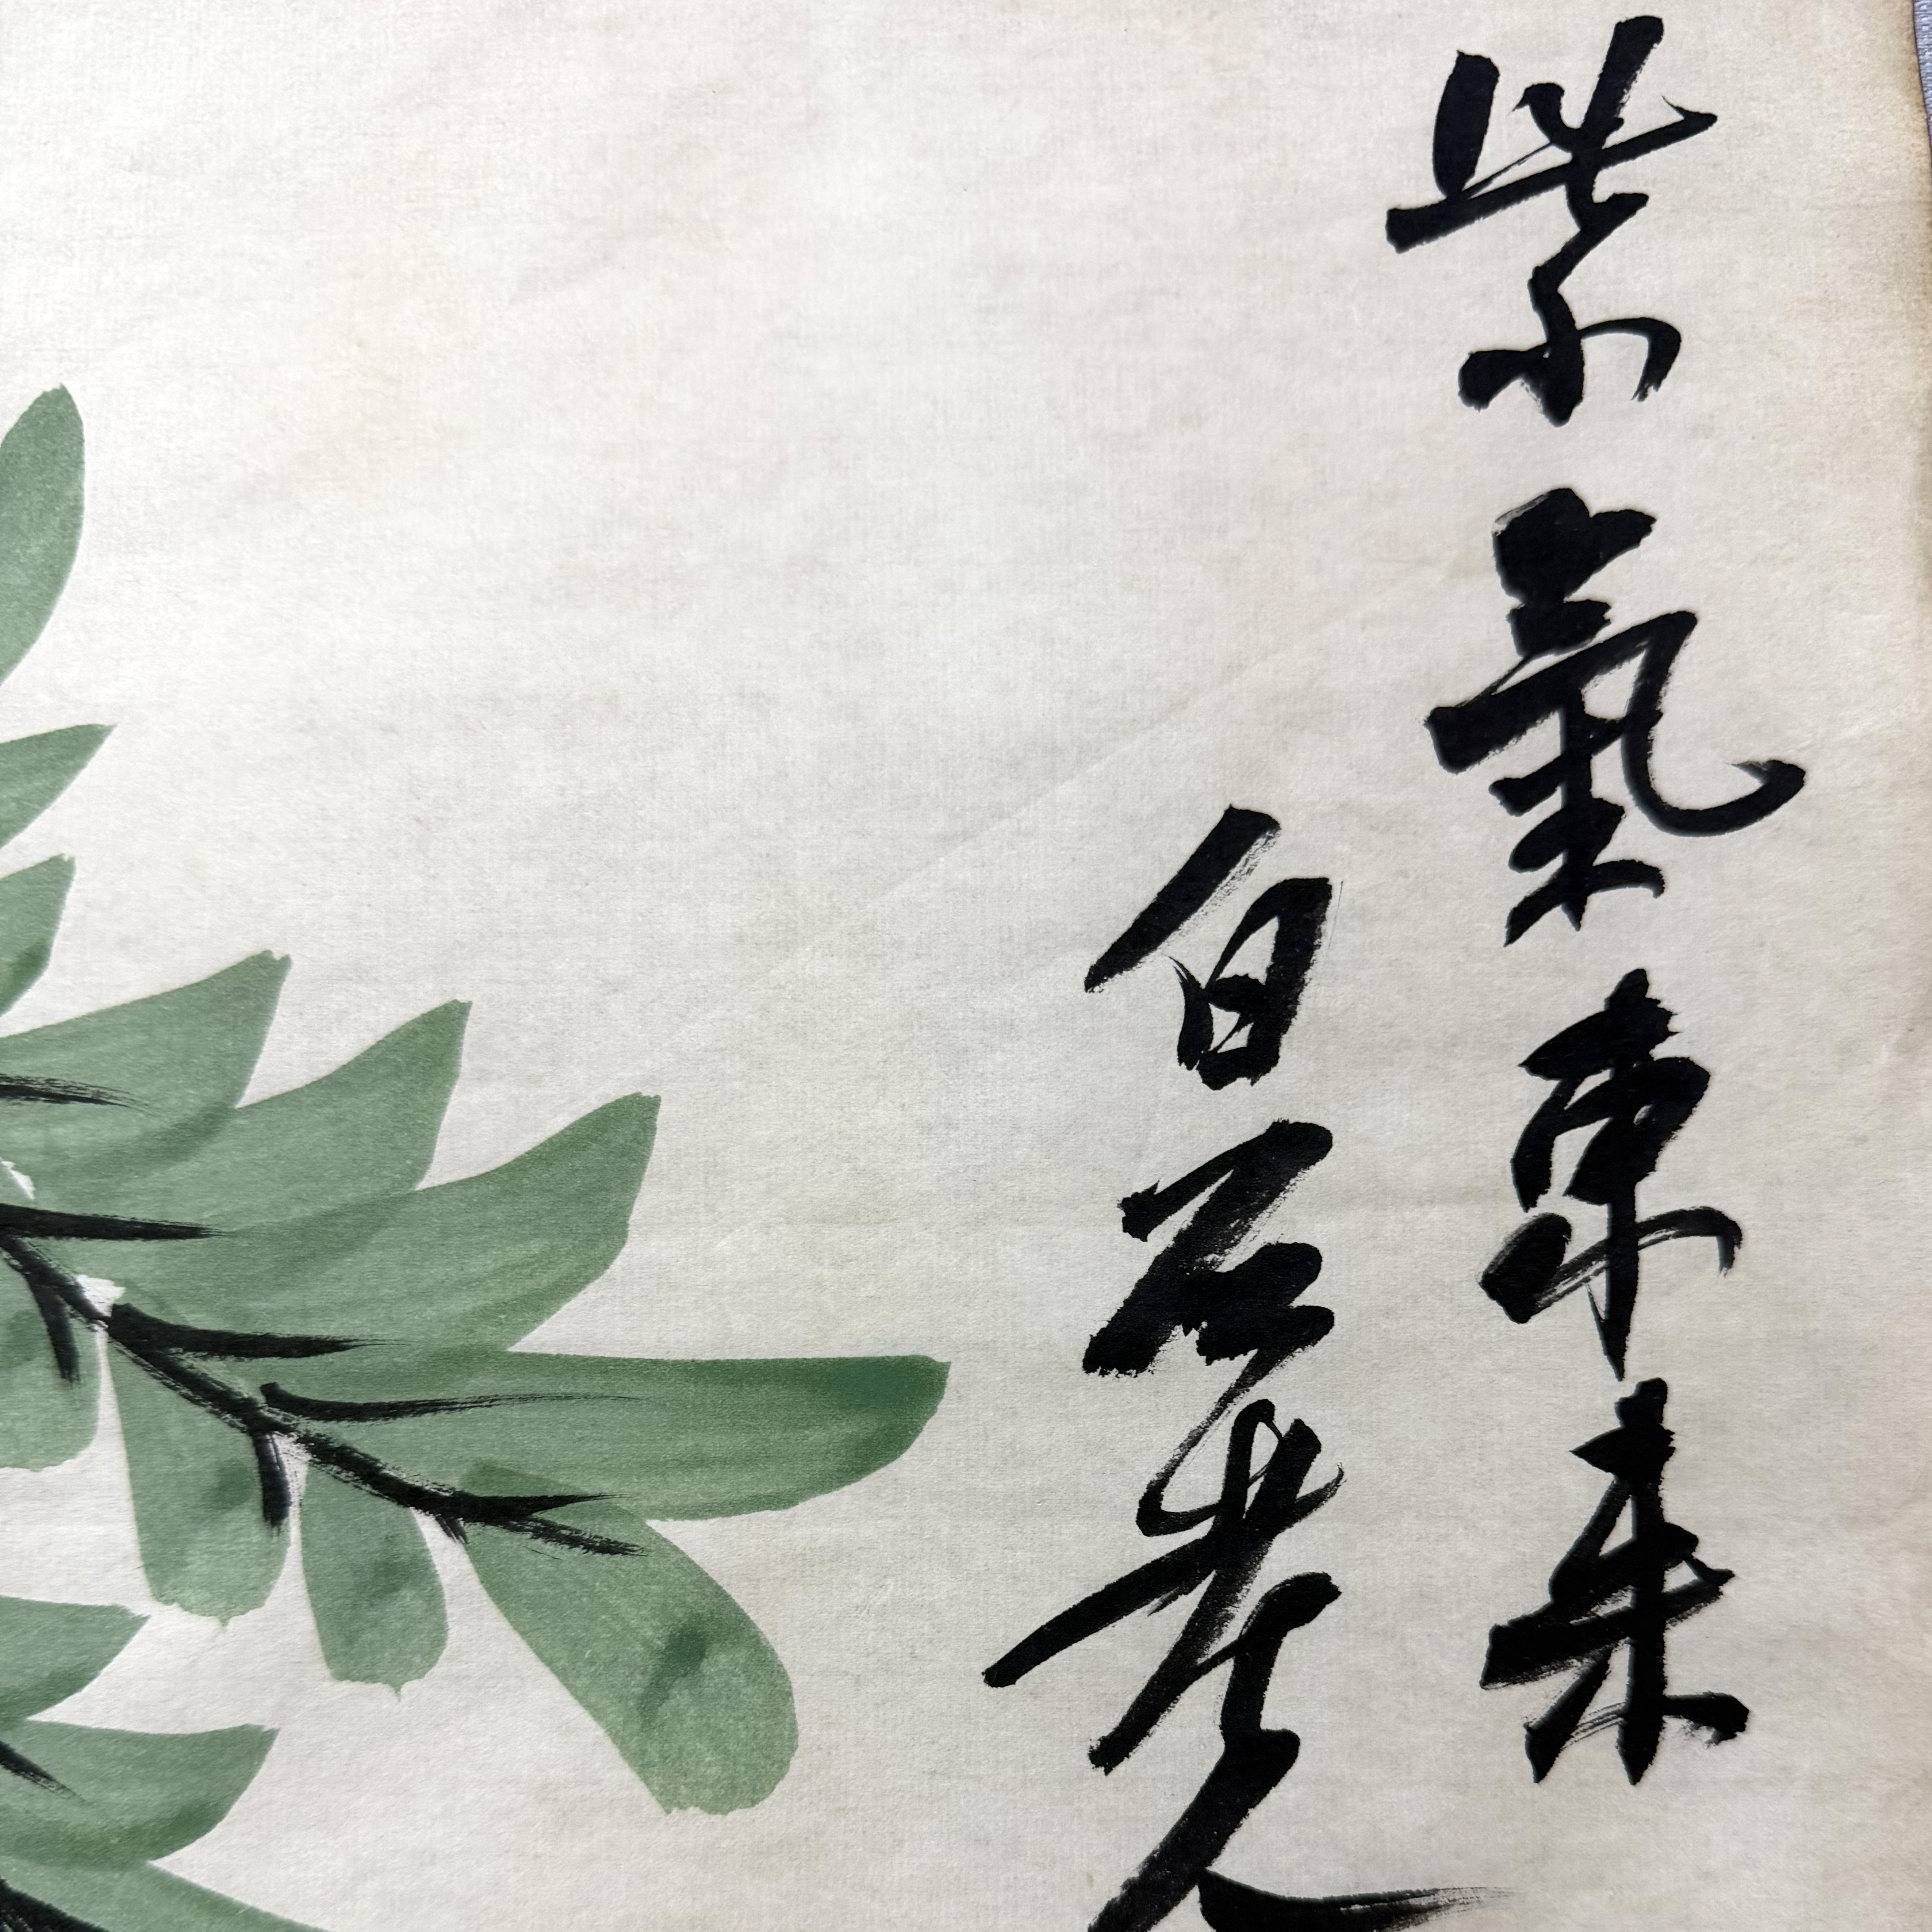 紫氣東来
白石老人